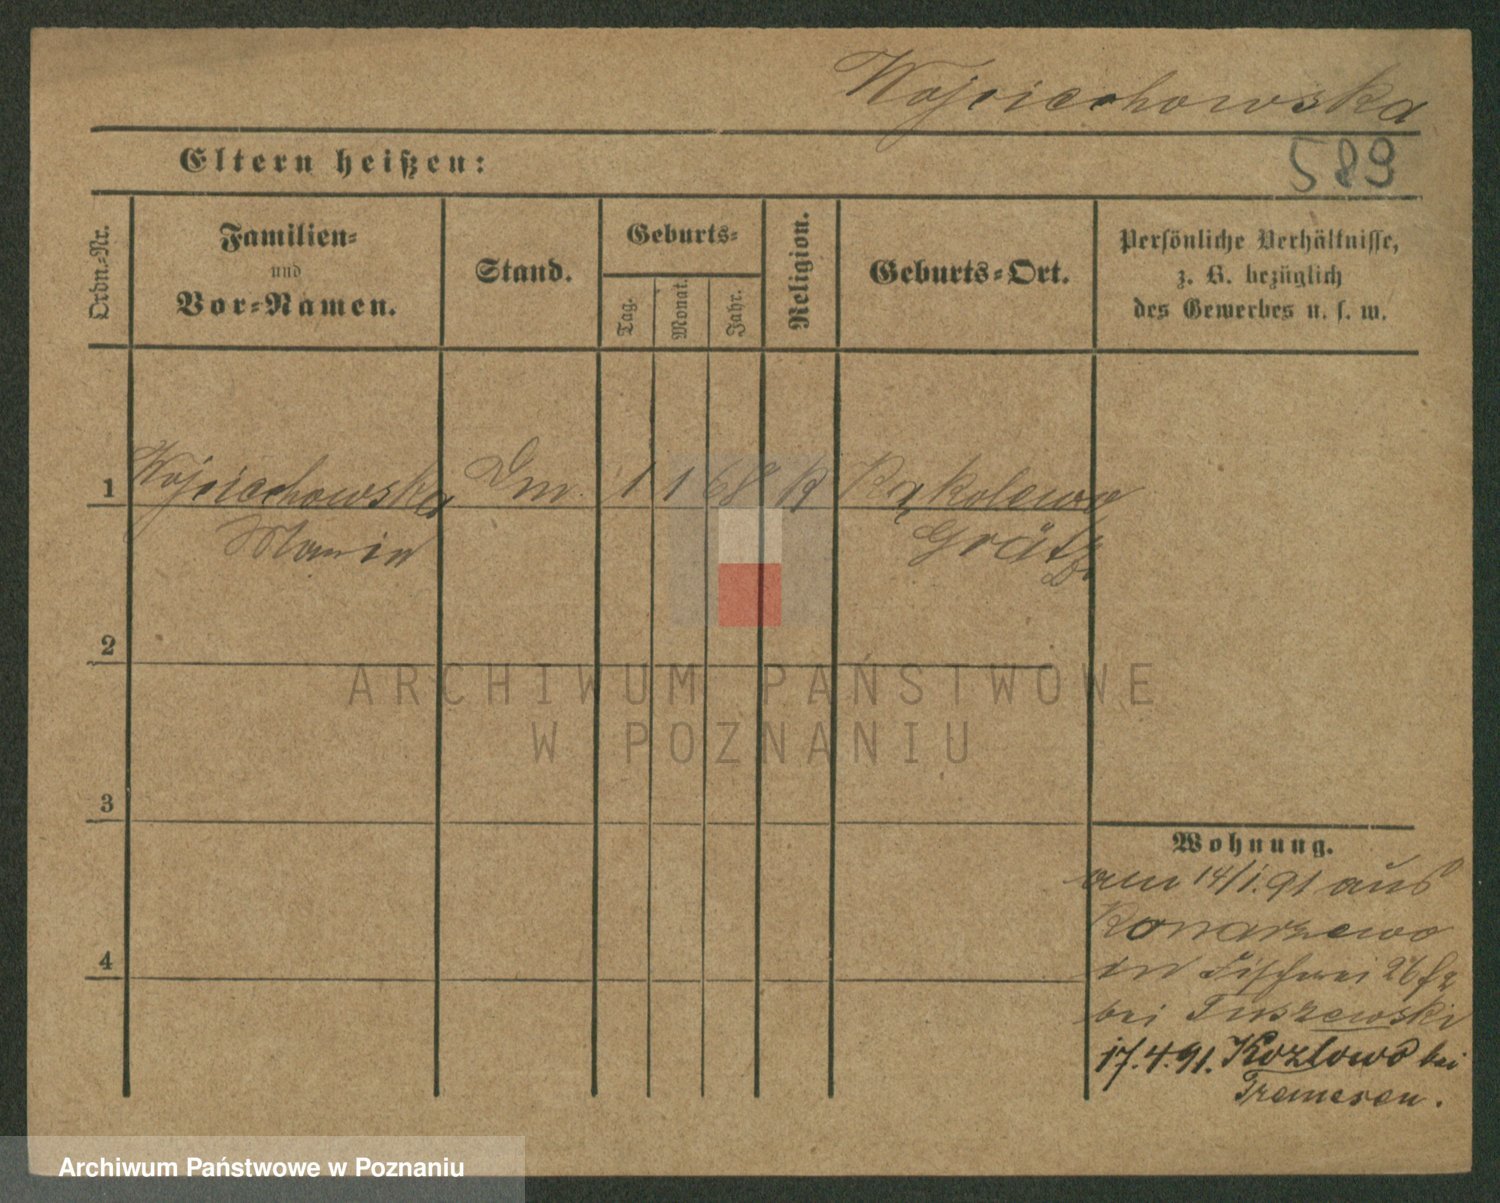 Wojciechowska
Eltern heißen:
589
Ordn.-Nr.
Familien-
und
Vor-Namen.
Stand.
Geburts-
Tag.
Monat.
Jahr.
Religion.
Geburts-Ort.
Persönliche Verhältnisse,
z. B. bezüglich
des Gewerbes u. s. w.
1 Wojciechowska Dm. 1 1 68 K Rąkolewo
Maria Grätz
2
3
4
ARCHIWUM PAŃSTWOWE
W POZNANIU
Wohnung.
am 14/1.91 aus
Konarzewo
in Fischerei 26
bei Tuszewski
17.4.91. Kozlowo bei
Tremesen.
Archiwum Państwowe w Poznaniu